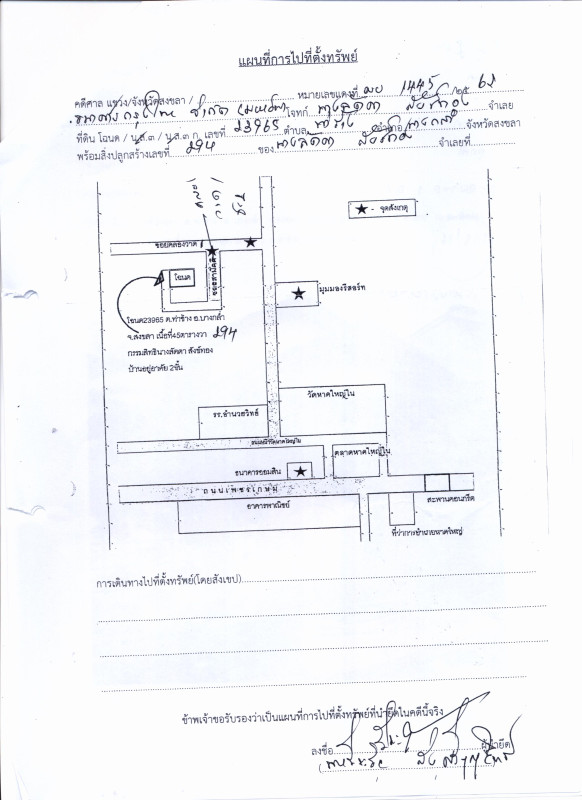 แผนที่การไปที่ตั้งทรัพย์
คดีศาล แขวง/จังหวัดสงขลา / หมายเลขแดงที่ ผบ 1445 /25 62
ธนาคารกรุงไทย จำกัด (มหาชน) โจทก์ จำเลย
ที่ดิน โฉนด / น.ส.๓ / น.ส.๓ ก. เลขที่ 23965 ตำบล ท่าช้าง อำเภอ บางกล่ำ จังหวัดสงขลา
พร้อมสิ่งปลูกสร้างเลขที่ 294 ของ จำเลยที่
★ - จุดสังเกตุ
ซอยคลองวาด
โฉนด
มุมมองรีสอร์ท
โฉนด23965 ต.ท่าช้าง อ.บางกล่ำ
จ.สงขลา เนื้อที่45ตารางวา 294
กรรมสิทธินางลัดดา สังข์ทอง
บ้านอยู่อาศัย 2ชั้น
วัดหาดใหญ่ใน
รร.อำนวยวิทย์
ตลาดหาดใหญ่ใน
ธนาคารออมสิน
ถนนเพชรเกษม
สะพานคอนกรีต
อาคารพาณิชย์
ที่ว่าการอำเภอหาดใหญ่
การเดินทางไปที่ตั้งทรัพย์(โดยสังเขป)
ข้าพเจ้าขอรับรองว่าเป็นแผนที่การไปที่ตั้งทรัพย์ที่นำยึดในคดีนี้จริง
ลงชื่อ ผู้นำยึด